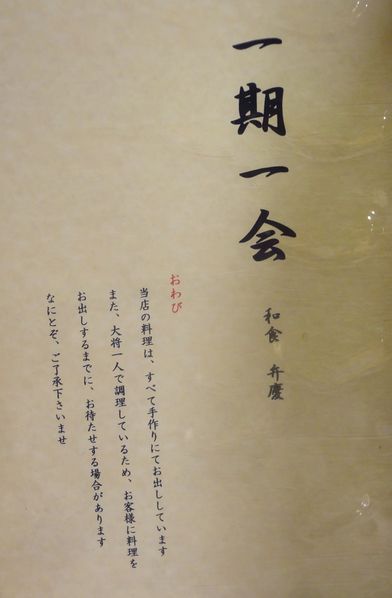 一期一会
和食 弁慶
おわび
当店の料理は、すべて手作りにてお出ししています
また、大将一人で調理しているため、お客様に料理を
お出しするまでに、お待たせする場合があります
なにとぞ、ご了承下さいませ